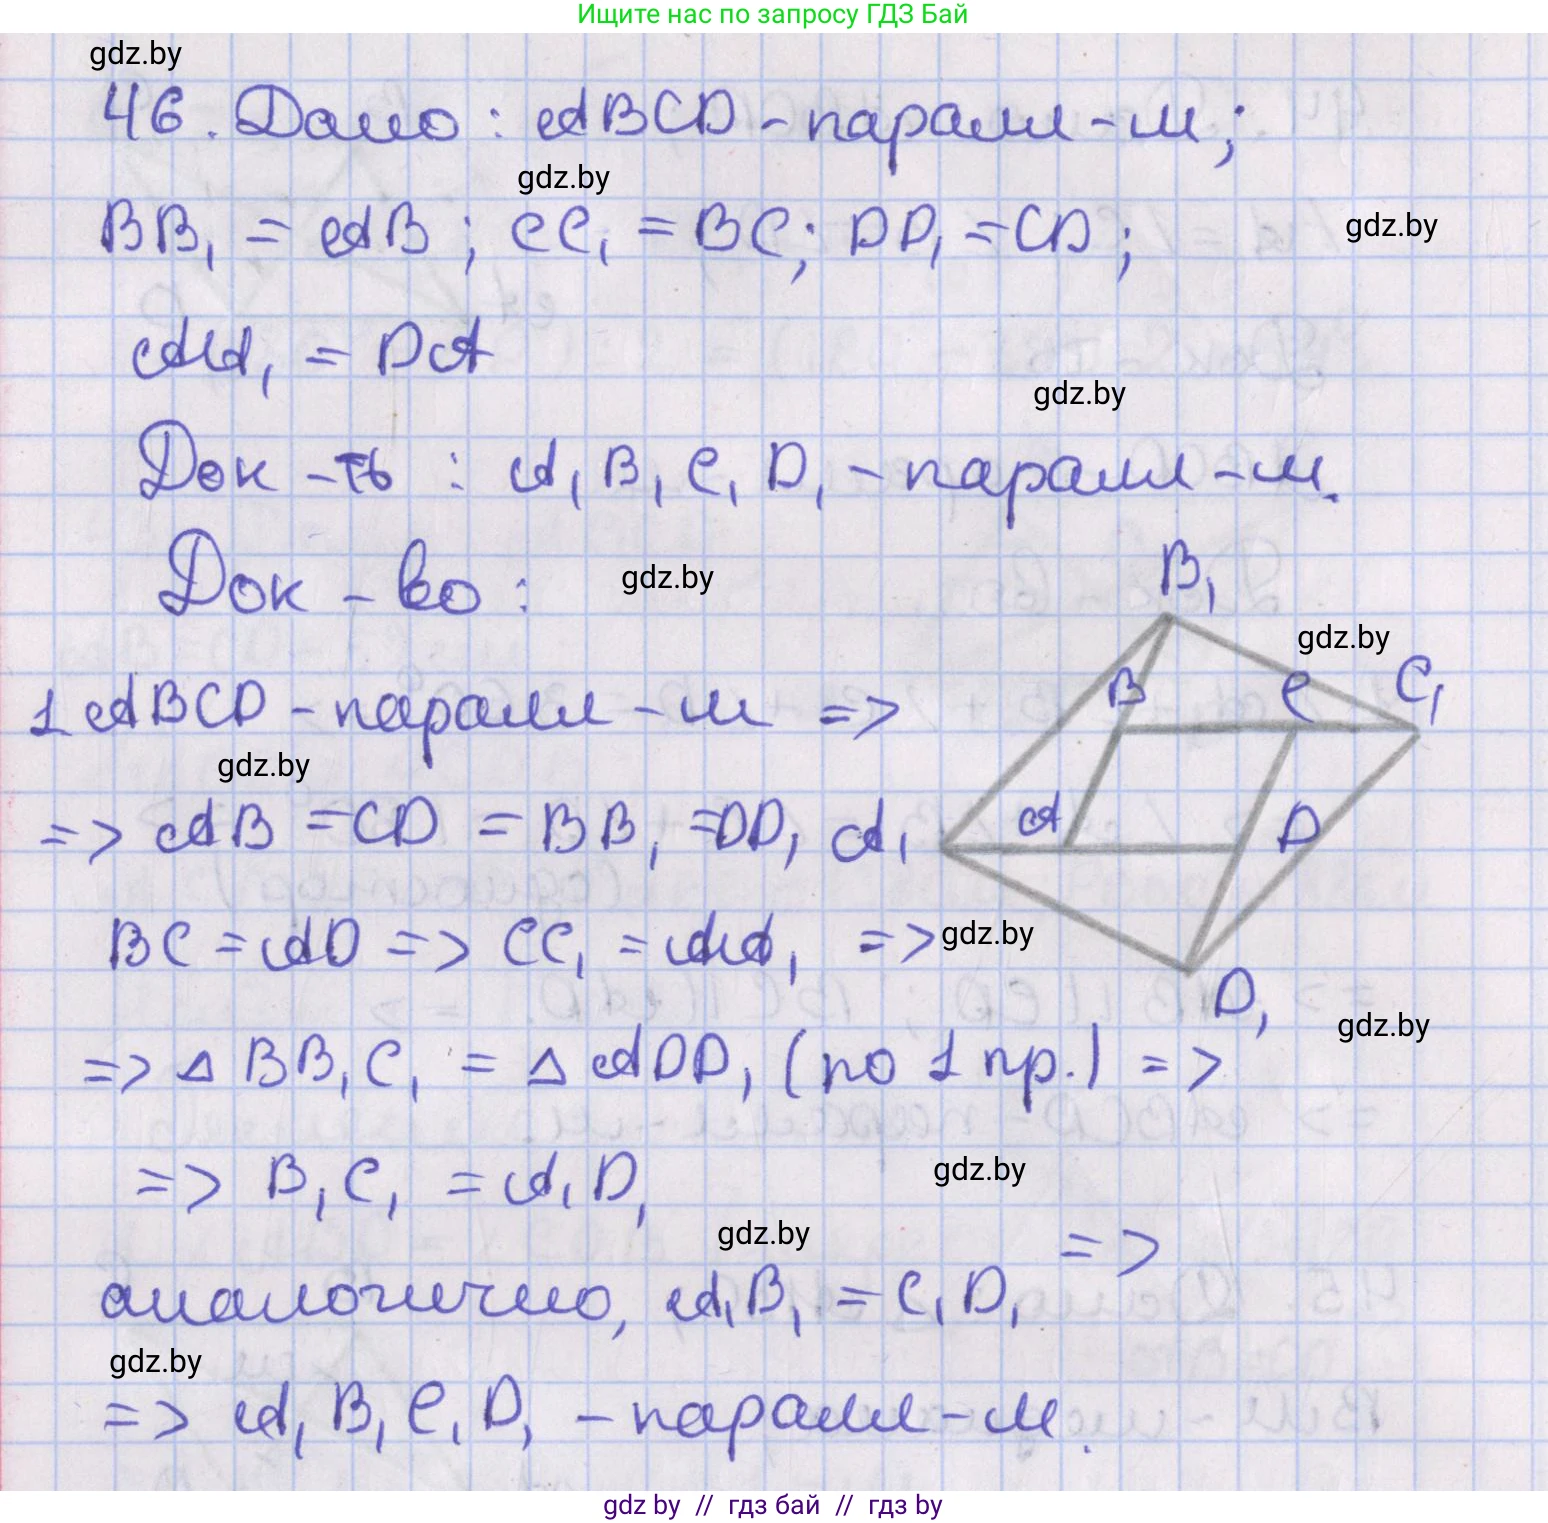 Ищите нас по запросу ГДЗ Бай
gdz.by
46. Дано: ABCD - паралл-м;
gdz.by
BB₁ = AB; CC₁ = BC; DD₁ = CD;
gdz.by
AA₁ = DA
gdz.by
Док-ть: A₁B₁C₁D₁ - паралл-м.
Док-во:
gdz.by
B₁
gdz.by
B C C₁
1 ABCD - паралл-м =>
gdz.by
=> AB = CD = BB₁ = DD₁
A₁ A D
BC = AD => CC₁ = AA₁ =>
gdz.by
D₁
gdz.by
=> △ BB₁C₁ = △ ADD₁ (по 1 пр.) =>
=> B₁C₁ = A₁D₁
gdz.by
gdz.by
аналогично, A₁B₁ = C₁D₁ =>
gdz.by
=> A₁B₁C₁D₁ - паралл-м.
gdz by // гдз бай // гдз by